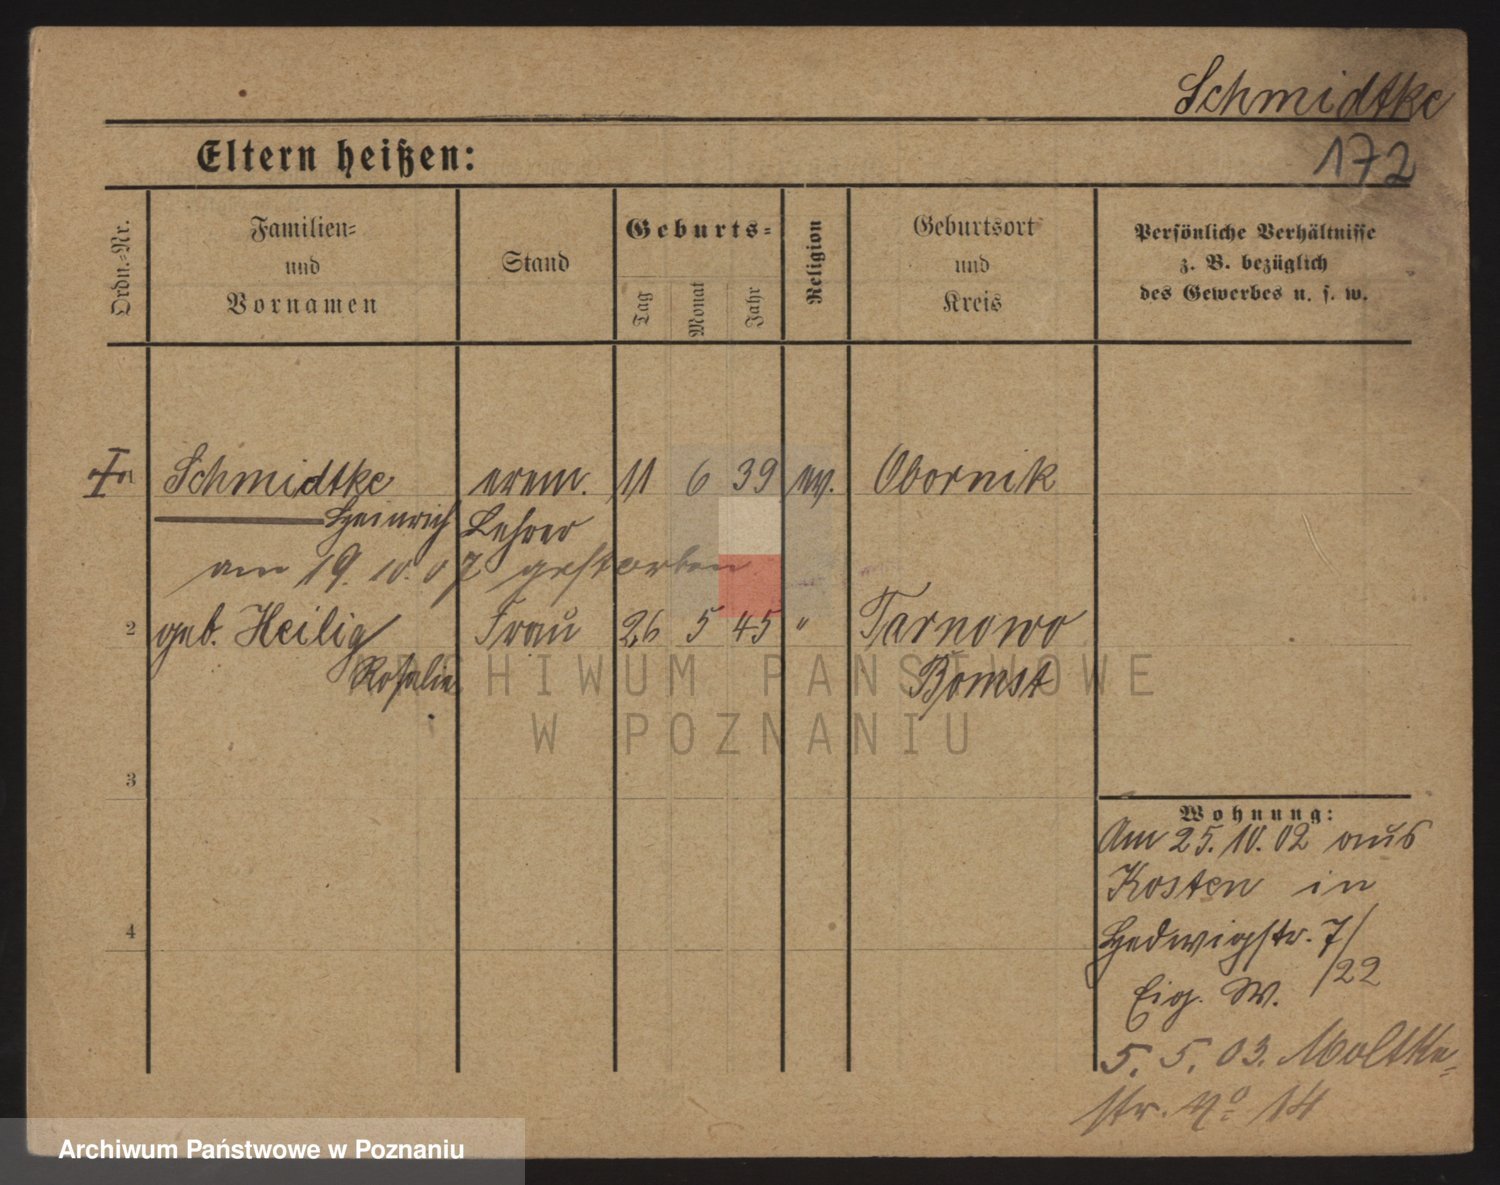 Schmidtke
172
Eltern heißen:
Ordn.-Nr.
Familien-
und
Vornamen
Stand
Geburts-
Tag
Monat
Jahr
Religion
Geburtsort
und
Kreis
Persönliche Verhältnisse
z. B. bezüglich
des Gewerbes u. s. w.
1 Schmidtke erem. 11 6 39 ev. Obornik
Heinrich Lehrer
am 19. 10. 07 gestorben
2 geb. Heilig Frau 26 5 45 " Tarnowo
Rosalie Bomst
ARCHIWUM PAŃSTWOWE
W POZNANIU
3
Wohnung:
Am 25. 10. 02 aus
Kosten in
4
Hedwigstr. 7/
/22
Eig. W.
5. 5. 03. Moltke-
str. No 14
Archiwum Państwowe w Poznaniu